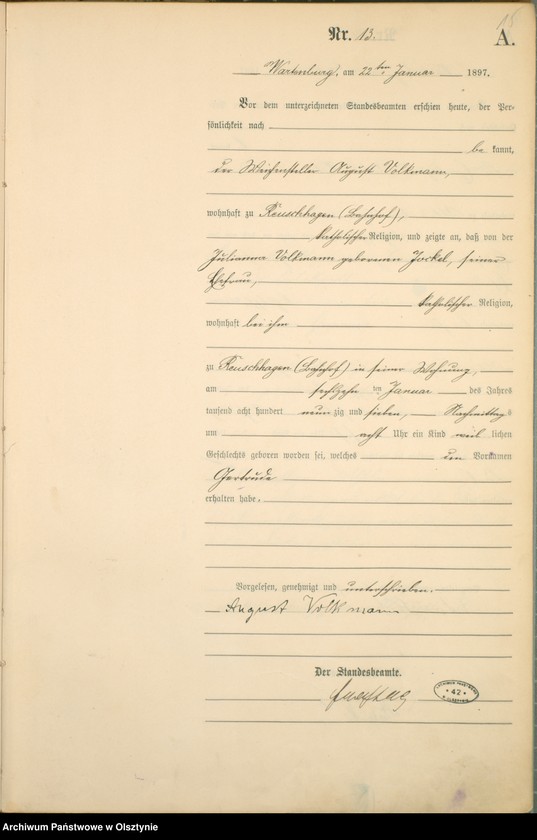 15
Nr. 13.
A.
Wartenburg, am 22ten Januar 1897.
Vor dem unterzeichneten Standesbeamten erschien heute, der Per-
sönlichkeit nach
be kannt,
der Weichensteller August Volkmann,
wohnhaft zu Reuschhagen (Bahnhof),
katholischer Religion, und zeigte an, daß von der
Julianna Volkmann geborenen Jockel, seiner
Ehefrau,
katholischer Religion,
wohnhaft bei ihm
zu Reuschhagen (Bahnhof) in seiner Wohnung,
am sechszehn ten Januar des Jahres
tausend acht hundert neun zig und sieben, Nachmittags
um acht Uhr ein Kind weib lichen
Geschlechts geboren worden sei, welches den Vornamen
Gertrude
erhalten habe.
Vorgelesen, genehmigt und unterschrieben.
August Volkmann
Der Standesbeamte.
42
Archiwum Państwowe w Olsztynie